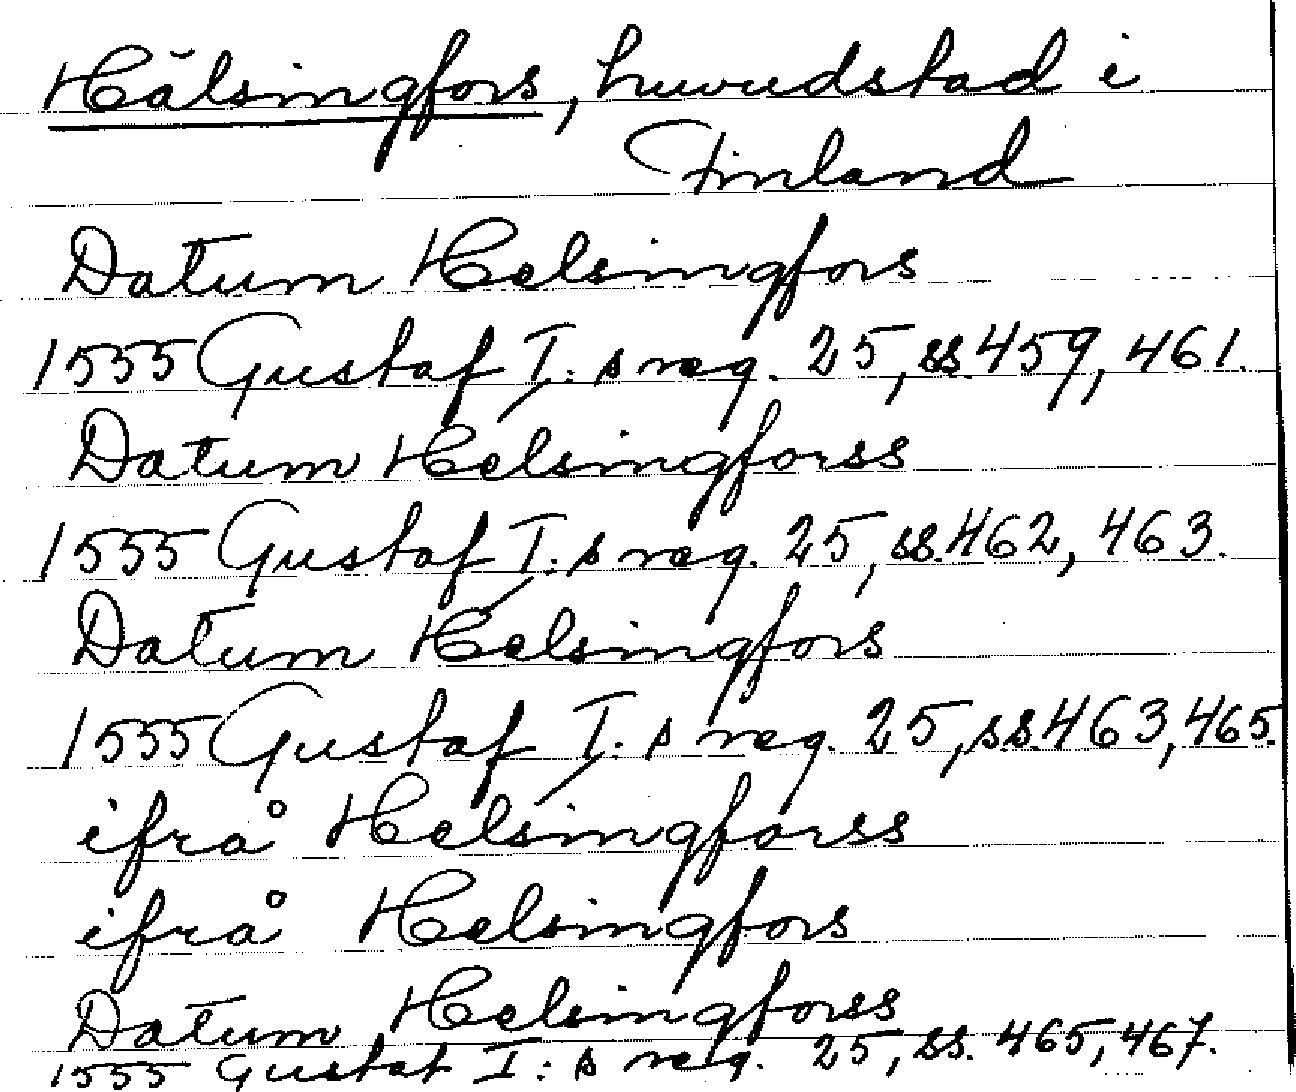 Hälsingfors, huvudstad i
Finland
Datum Helsingfors
1555 Gustaf I:s reg. 25, ss. 459, 461.
Datum Helsingforss
1555 Gustaf I:s reg. 25, ss. 462, 463.
Datum Helsingfors
1555 Gustaf I:s reg. 25, ss. 463, 465.
ifrå Helsingforss
ifrå Helsingfors
Datum Helsingforss
1555 Gustaf I:s reg. 25, ss. 465, 467.